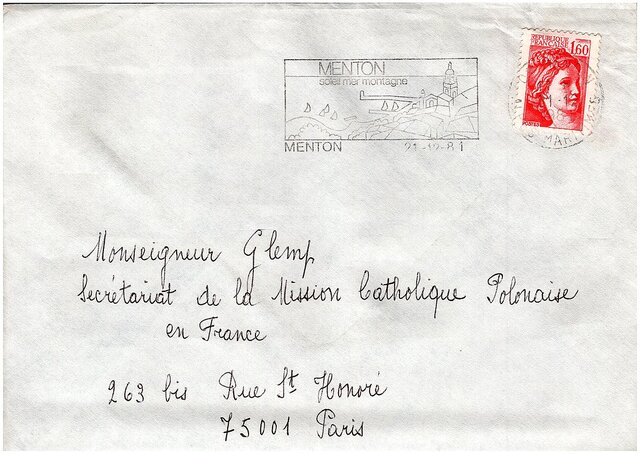 REPUBLIQUE
FRANCAISE 1,60
MENTON
soleil mer montagne
MENTON 21-12-81
Monseigneur Glemp
Secrétariat de la Mission Catholique Polonaise
en France
263 bis Rue St Honoré
75001 Paris